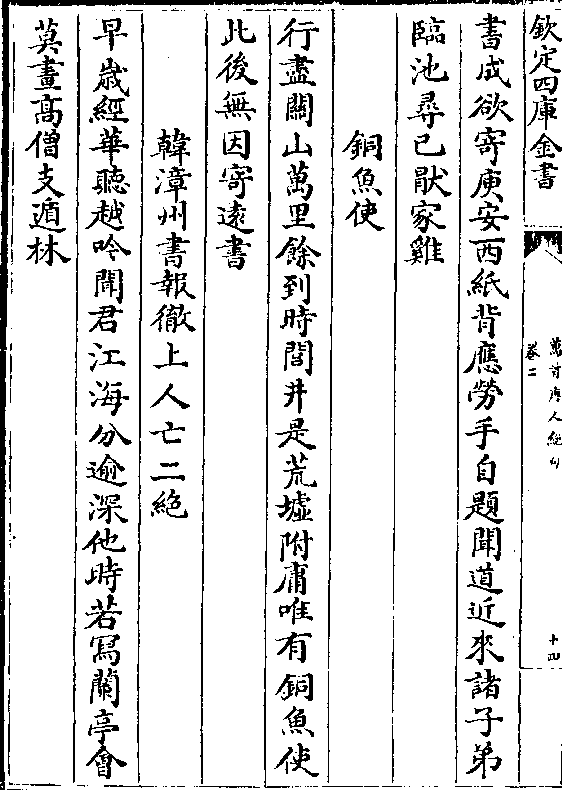 欽定四庫全書
萬首唐人絶句
卷二
十四
書成欲寄庾安西紙背應勞手自題聞道近來諸子弟
臨池尋已厭家雞
銅魚使
行盡關山萬里餘到時閭井是荒墟附庸唯有銅魚使
此後無因寄遠書
韓漳州書報徹上人亡二絶
早歲經華聽越吟聞君江海分逾深他時若寫蘭亭會
莫畫高僧支遁林